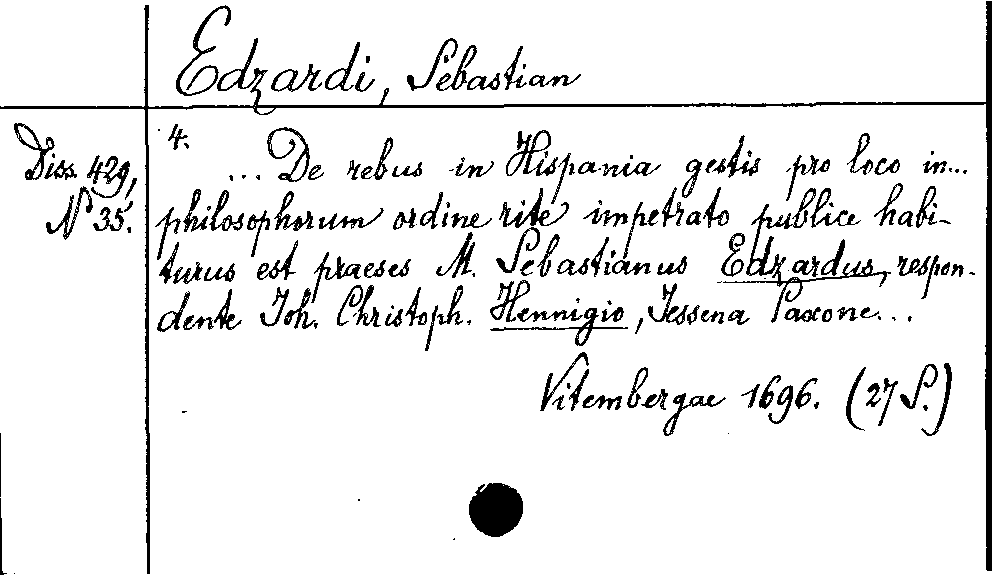 Edzardi, Sebastian
Diss. 429,
N 35.
4.
... De rebus in Hispania gestis pro loco in...
philosophorum ordine rite impetrato publice habi-
turus est praeses M. Sebastianus Edzardus, respon-
dente Joh. Christoph. Hennigio, Jessena Saxone...
Vitembergae 1696. (27 S.)